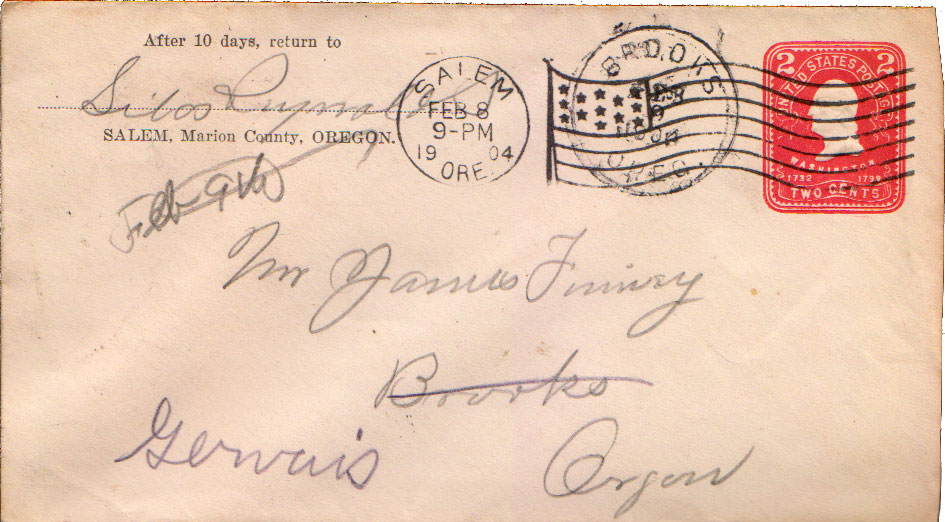 After 10 days, return to
Silas
SALEM, Marion County, OREGON.
SALEM
FEB 8
9-PM
1904
ORE.
BROOKS
OREG.
2 UNITED STATES POSTAGE 2
WASHINGTON
1732 1799
TWO CENTS
Feb 9th
Mr James Finney
Brooks
Gervais
Orgon